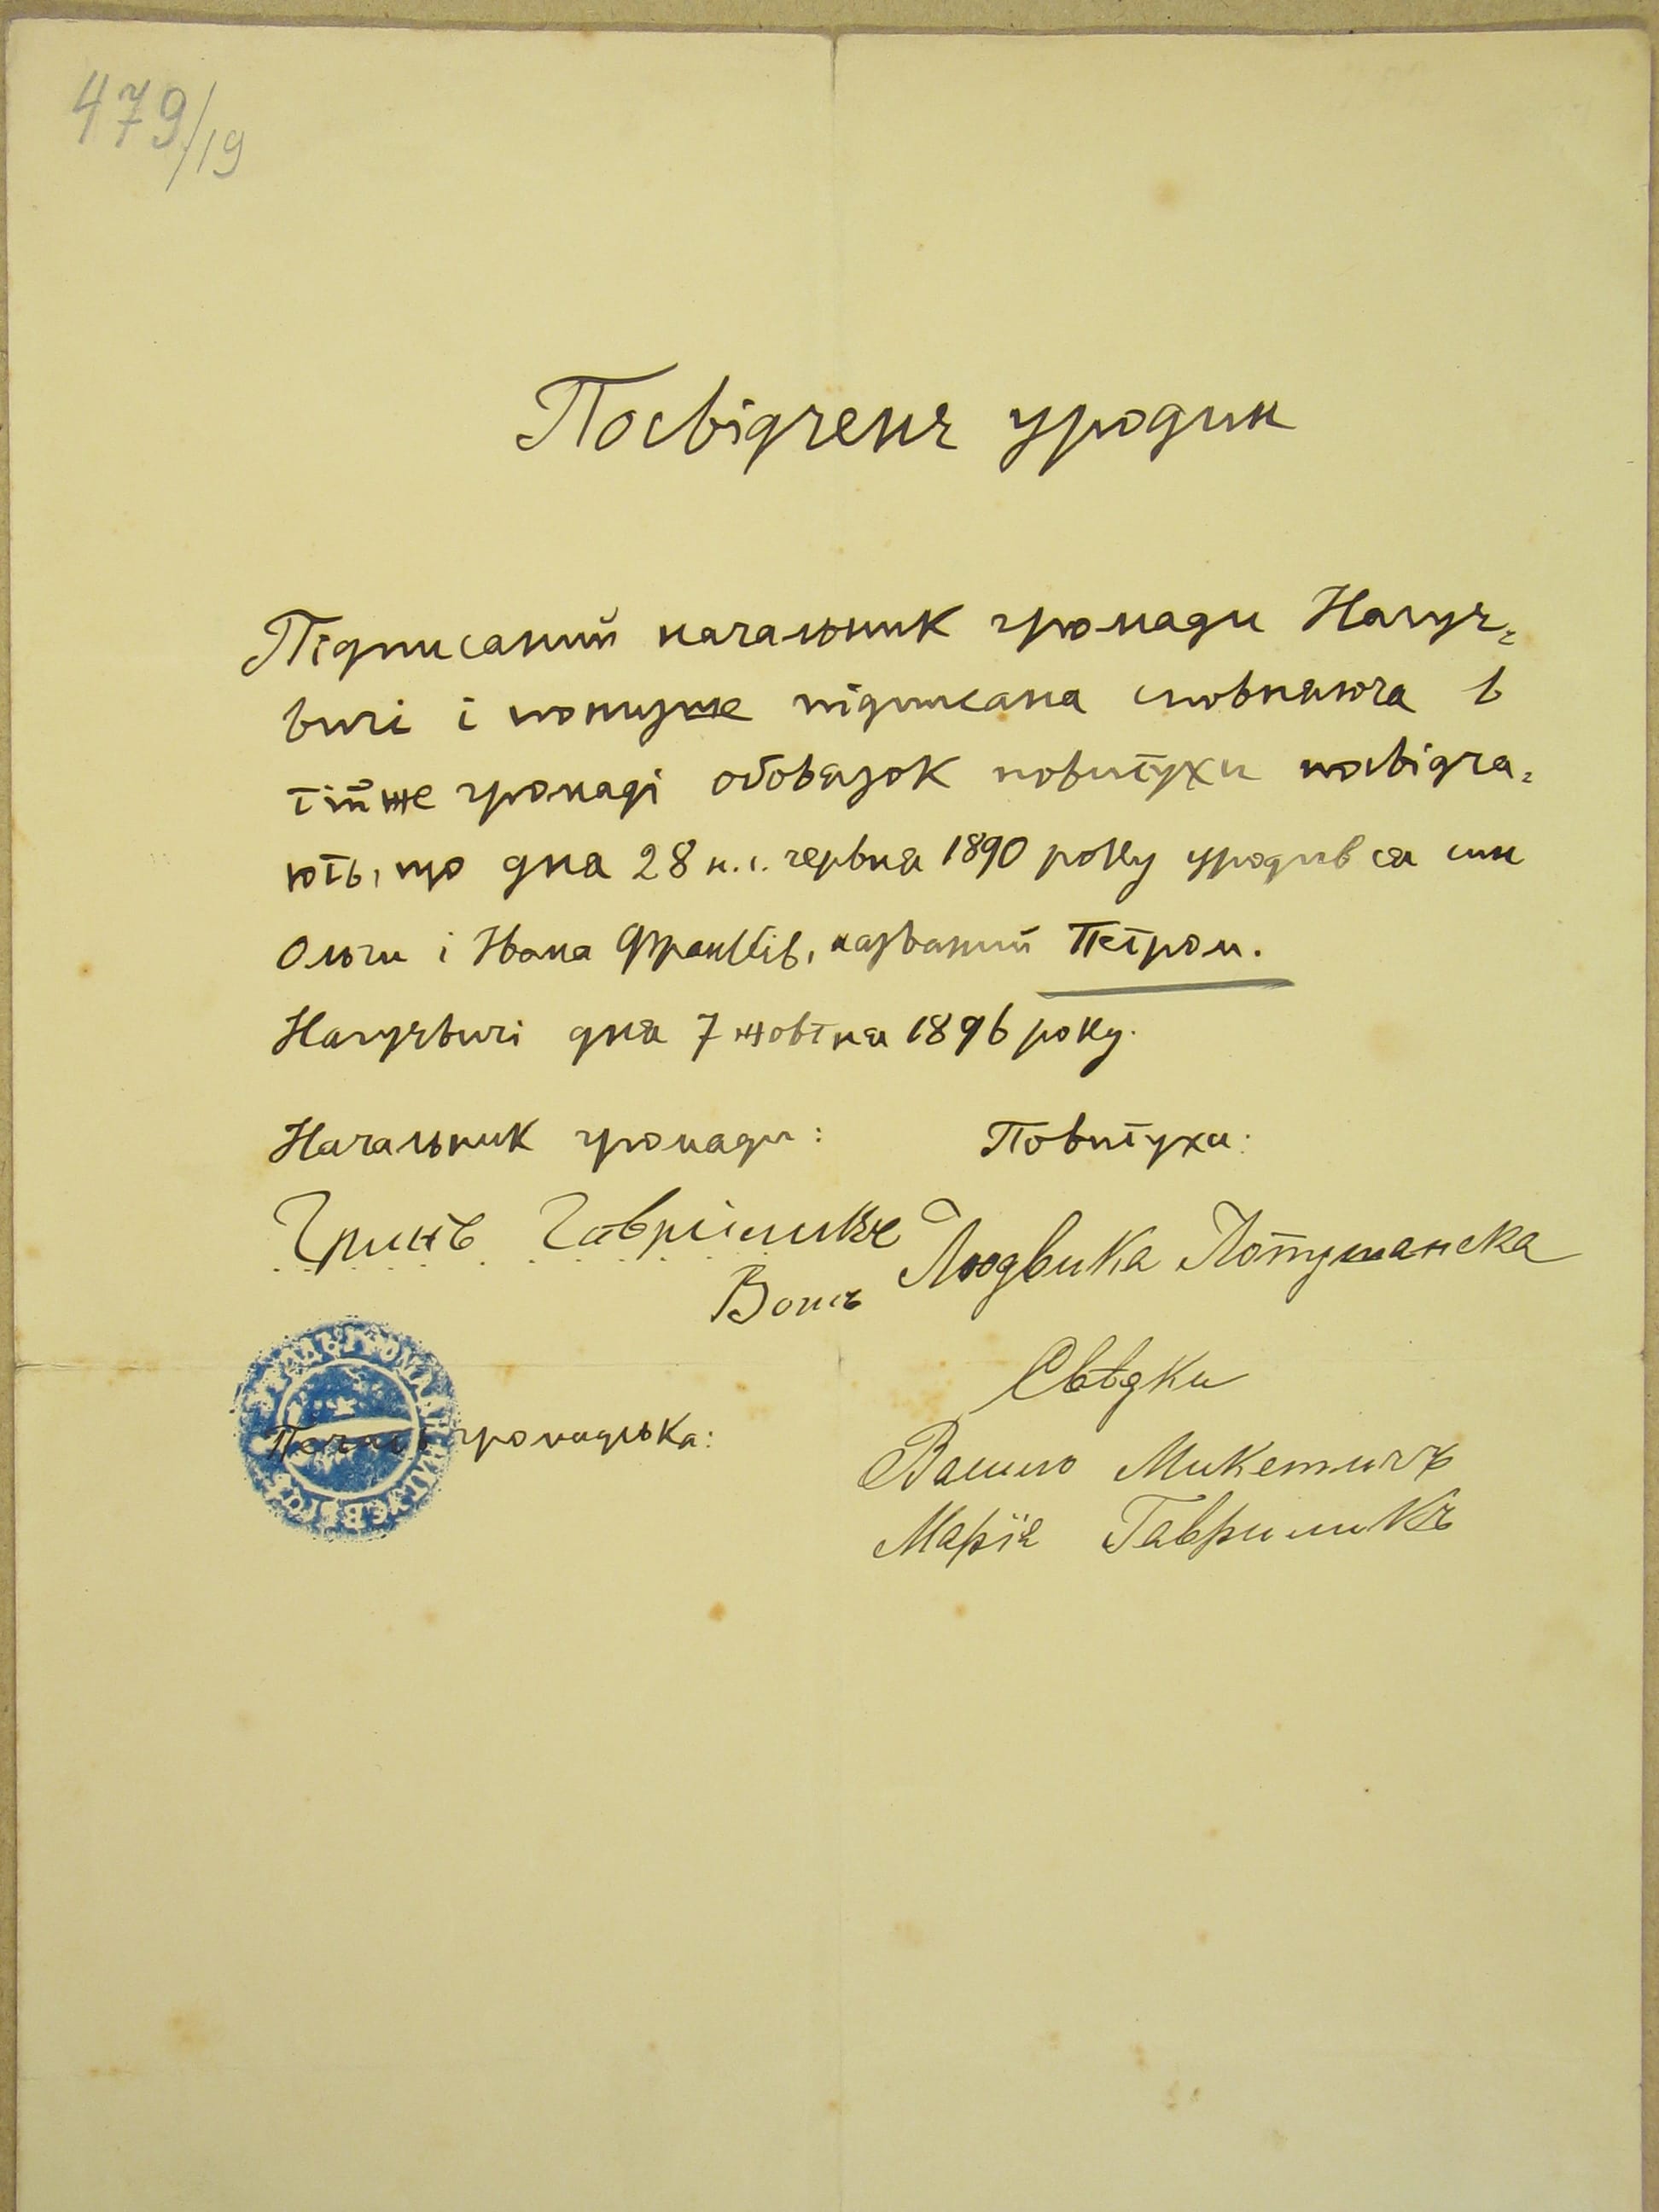 479/19
Посвідченє уродин
Підписаний начальник громади Нагує-
вичі і понизше підписана сповняюча в
тійже громаді обовязок повитухи посвідча-
ють, що дня 28 н. с. червня 1890 року уродив ся син
Ольги і Ивана Франків, названий Петром.
Нагуєвичі дня 7 жовтня 1896 року.
Начальник громади: Повитуха:
Гринь Людвика
Войт
Свѣдки
Печать громадська:
Василю Микетичъ
Маріє Гавриликъ